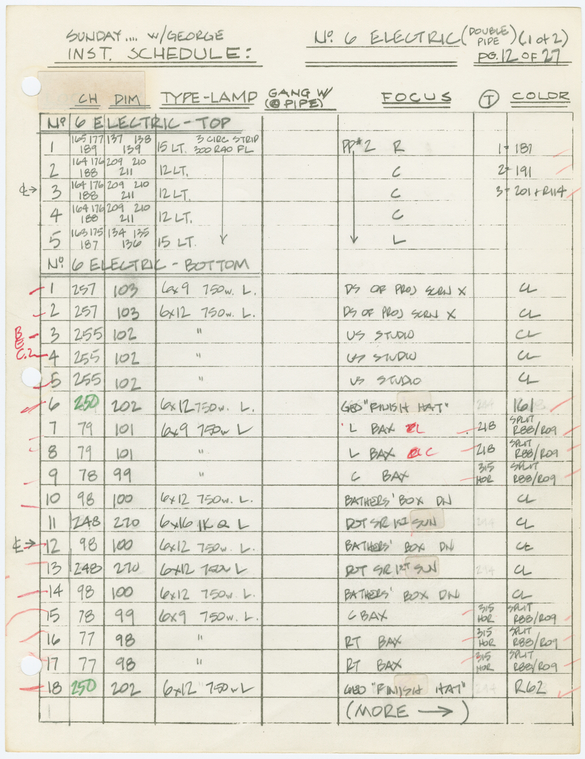 SUNDAY.... W/GEORGE
INST. SCHEDULE:
Nº 6 ELECTRIC (DOUBLE PIPE) (1 of 2)
PG. 12 OF 27
CH DIM TYPE-LAMP GANG W/ (@ PIPE) FOCUS T COLOR
Nº 6 ELECTRIC - TOP
1 165 177 189 137 138 139 15 LT. 3 CIRC STRIP 300 R40 FL PP#2 R 1- 187
2 164 176 188 209 210 211 12 LT. C 2- 191
CL→ 3 164 176 188 209 210 211 12 LT. C 3- 201+R114
4 164 176 188 209 210 211 12 LT. C
5 163 175 187 134 135 136 15 LT. L
Nº 6 ELECTRIC - BOTTOM
1 257 103 6x9 750w. L. DS OF PROJ SCRN X CL
2 257 103 6x12 750w. L. DS OF PROJ SCRN X CL
3 255 102 " US STUDIO CL
4 255 102 " US STUDIO CL
5 255 102 " US STUDIO CL
6 250 202 6x12 750w. L. GEO "FINISH HAT" 161
7 79 101 6x9 750w L. L BAX L 218 SPLIT R88/R09
8 79 101 " L BAX C 218 SPLIT R88/R09
9 78 99 " C BAX 315 HOR SPLIT R88/R09
10 98 100 6x12 750w. L. BATHERS' BOX DN CL
11 248 270 6x16 1K Q L DOT SR 1ST SUN CL
CL→ 12 98 100 6x12 750w. L. BATHERS' BOX DN CL
13 248 270 6x12 750w L DOT SR 1ST SUN CL
14 98 100 6x12 750w. L. BATHERS' BOX DN CL
15 78 99 6x9 750w L. C BAX 315 HOR SPLIT R88/R09
16 77 98 " RT BAX 315 HOR SPLIT R88/R09
17 77 98 " RT BAX 315 HOR SPLIT R88/R09
18 250 202 6x12 750w L GEO "FINISH HAT" R62
(MORE →)